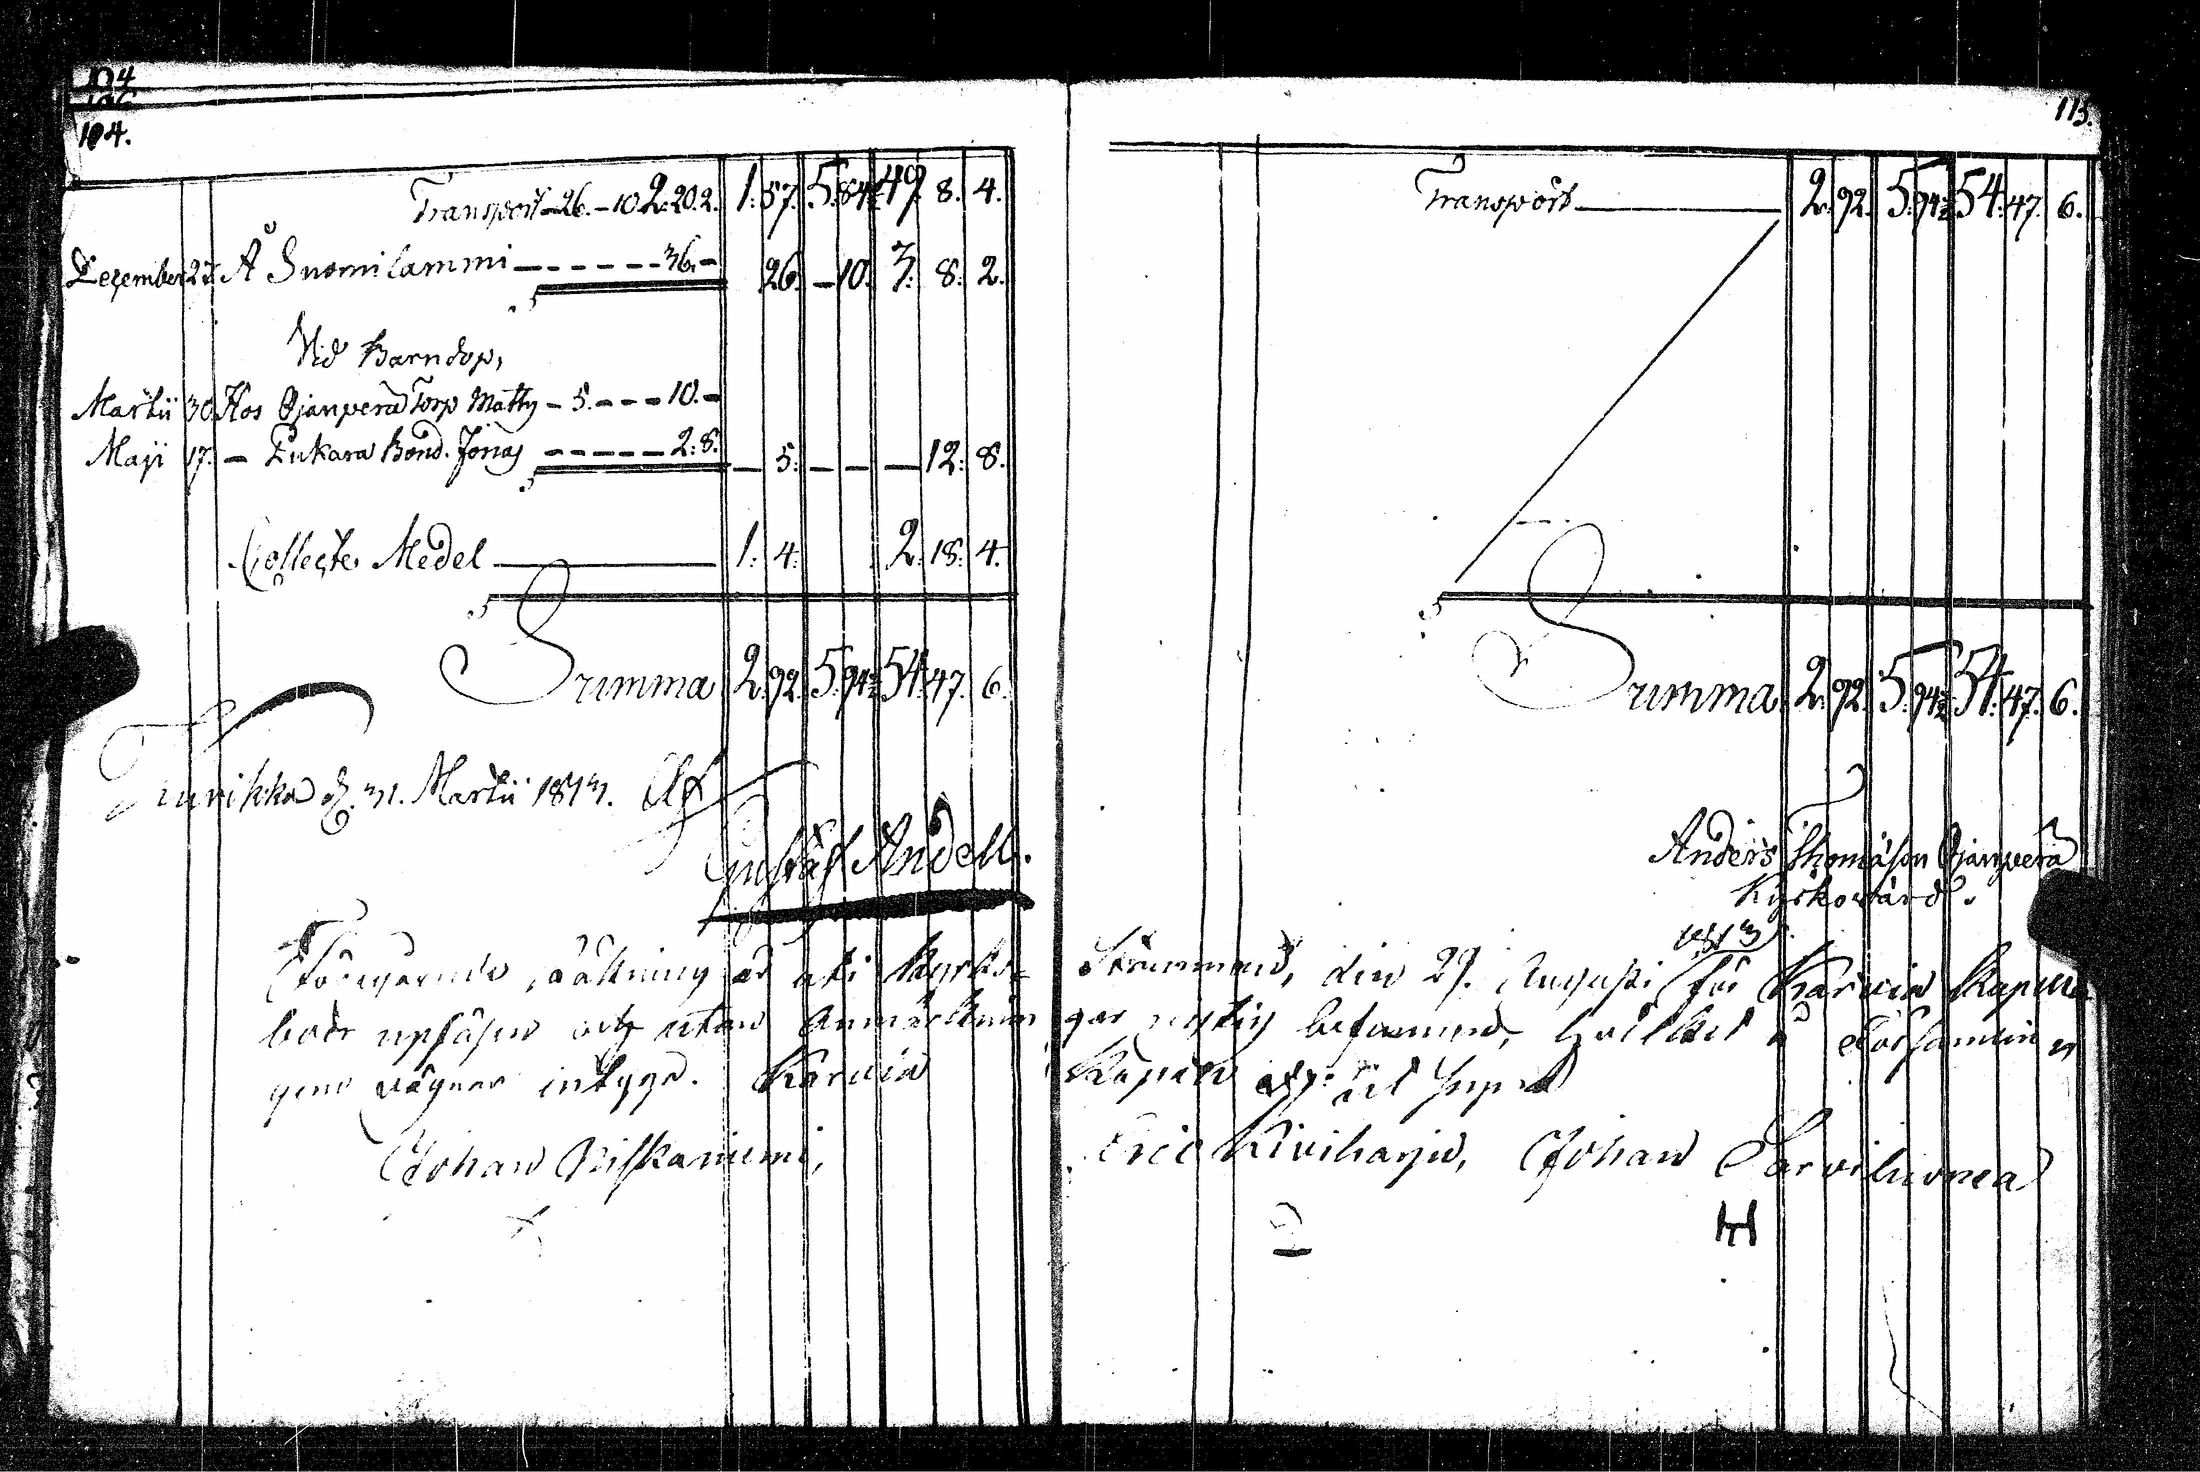 104.
Transport — 26. — 10. 2. 20. 2. 1. 57. 5. 84½ 49. 8. 4.
December 27. Å Suomilammi — 36. — 26. — 10. 3. 8. 2.
Vid Barndop,
Martii 30 Hos Ojanperä Torp Matty — 5. — 10. —
Maji 17. — Eukara Bond. Jonas — 2. 8. — 5. — — — 12. 8.
Collecte Medel — 1. 4. 2. 18. 4.
Summa 2. 92. 5. 94½ 54. 47. 6.
d. 31. Martii 1813. Af
Gustaf Andell.
Föregående räkning är uti Kyrko-
boär upläsen och utan Anmärknin
gens vägnar intyga. Karvia
Johan Niskaniemi,
113.
Transport — 2. 92. 5. 94½ 54. 47. 6.
Summa 2. 92. 5. 94½ 54. 47. 6.
Anders Thomasson Ojanperä
Kyrkovärd.
1813
Strämmand, den 29. Augusti för Karvia Kapell
gar riktig befunnen, hvilket å Församlin
Kapell och ut supra
Eric Kiviharju, Johan Sarviluoma